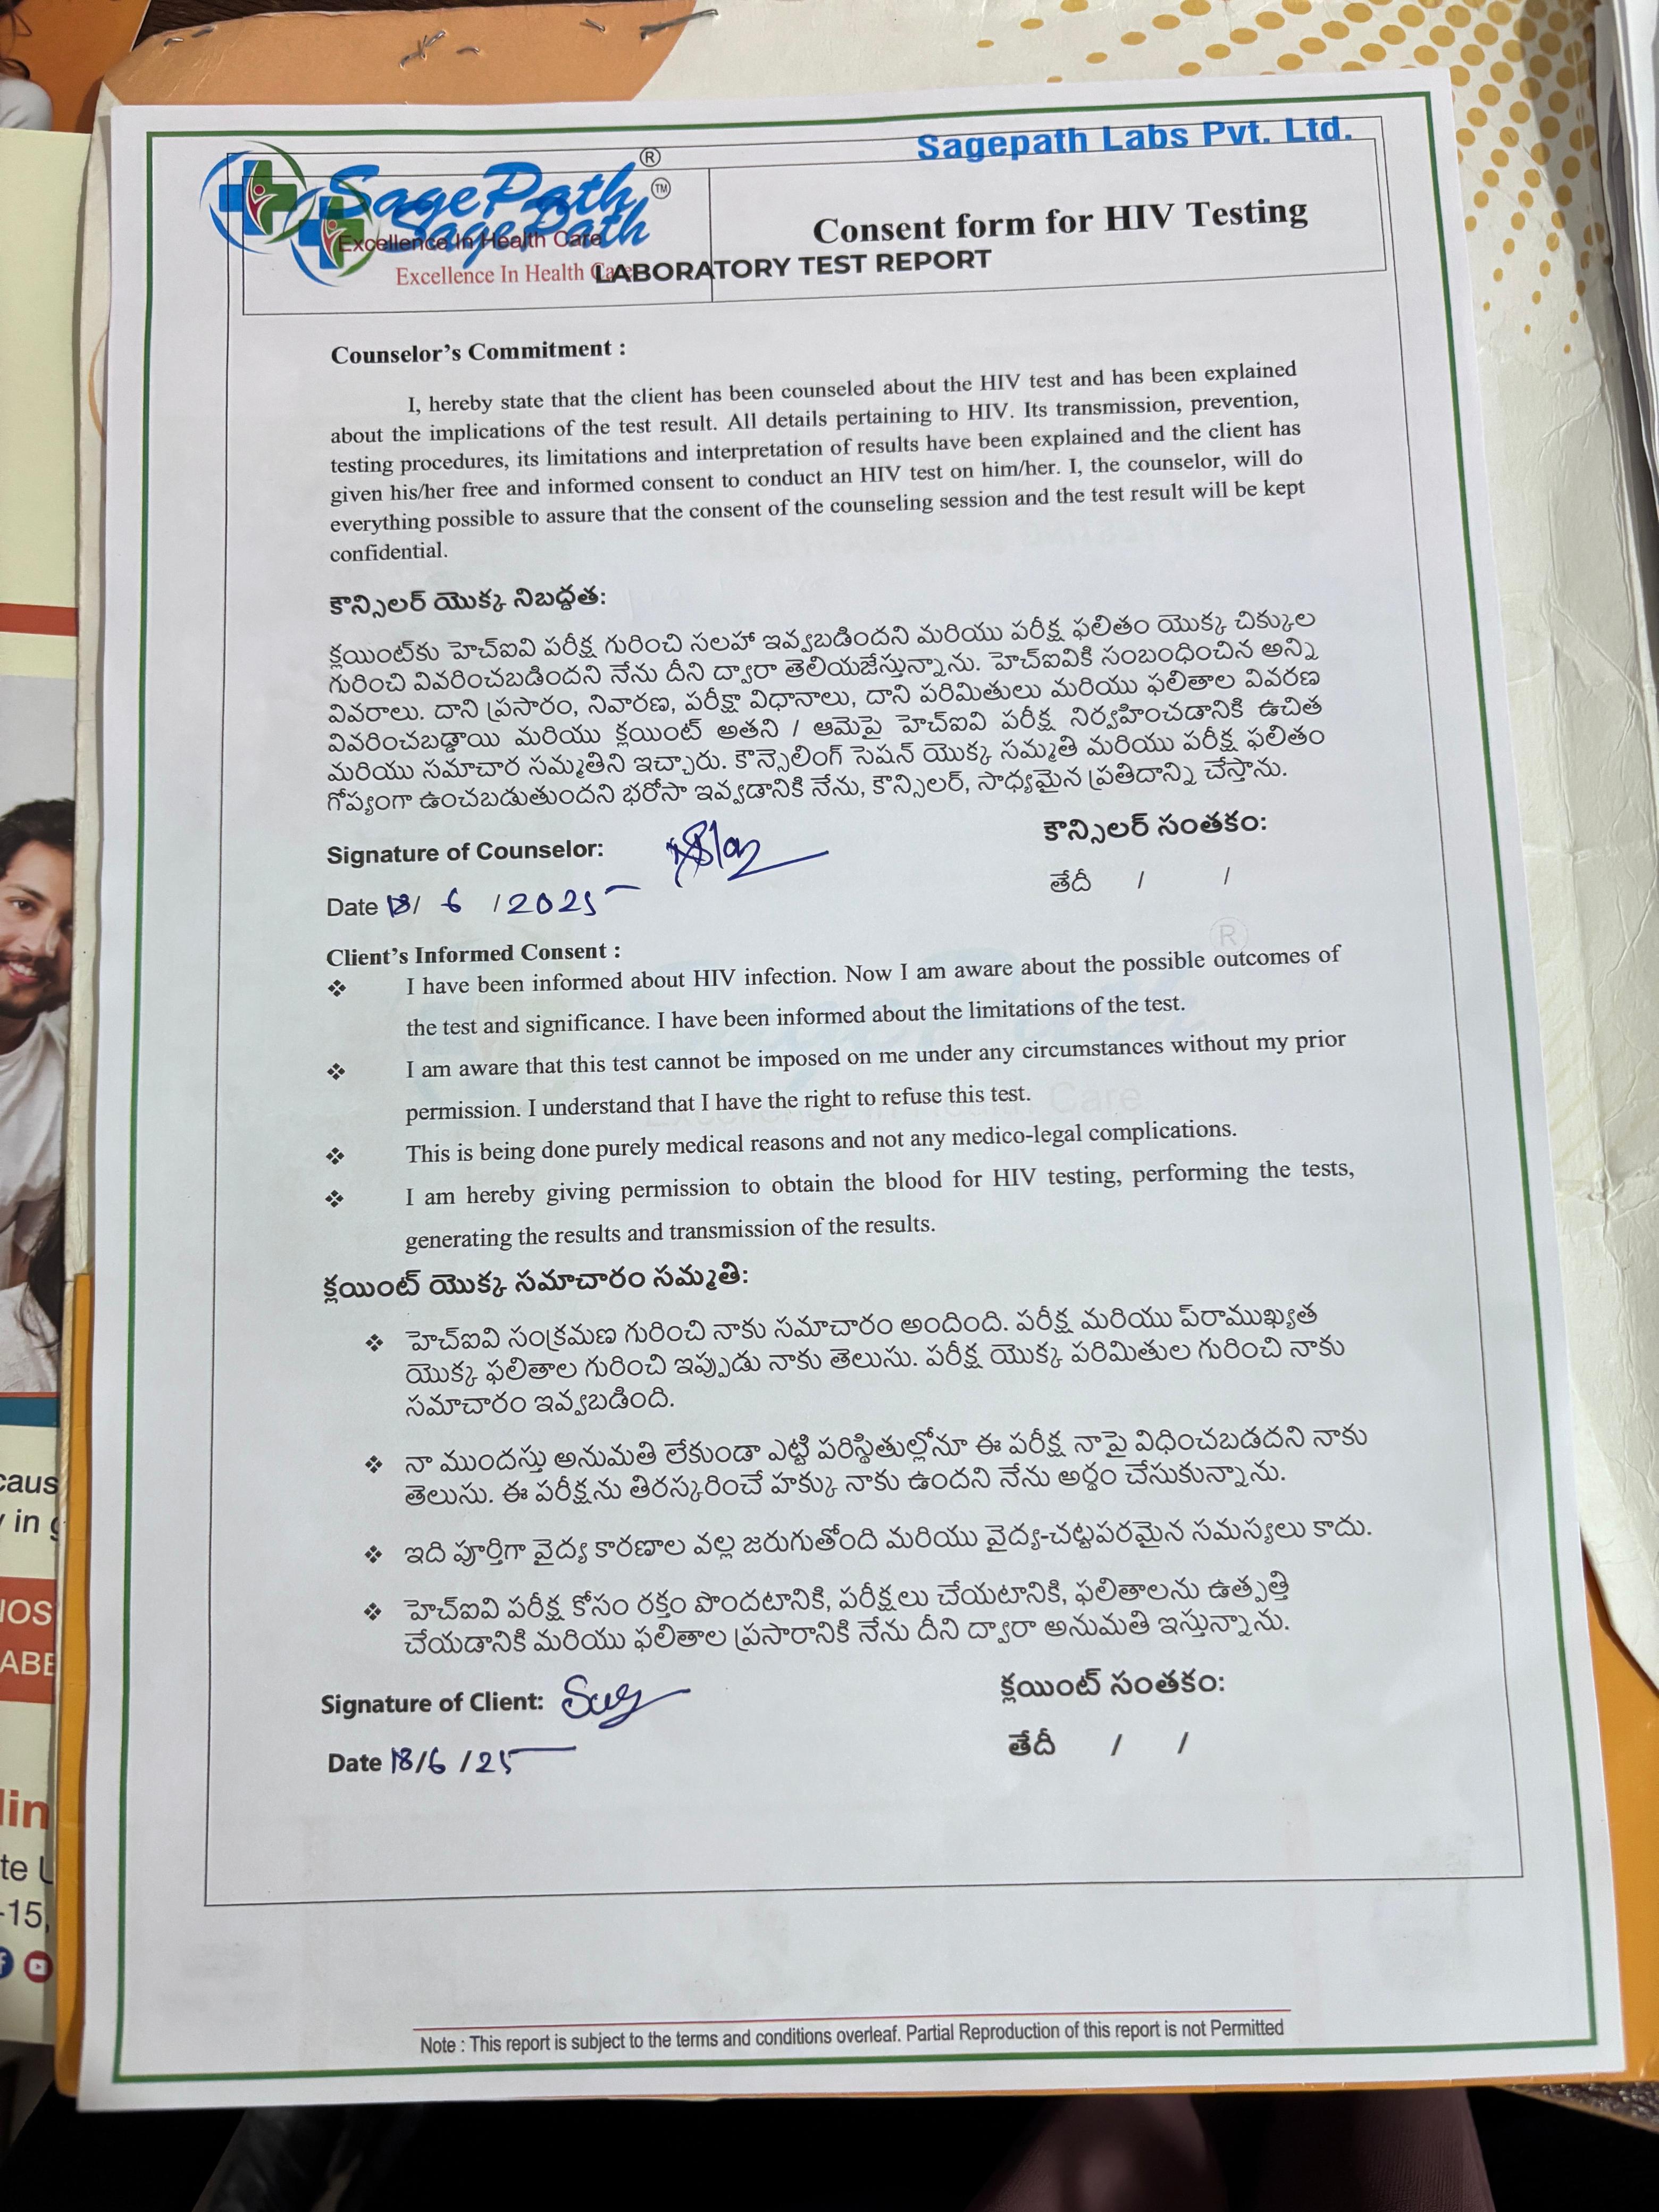 Sagepath Labs Pvt. Ltd.
SagePath ®
SagePath ™
Excellence In Health Care
Excellence In Health Care
Consent form for HIV Testing
LABORATORY TEST REPORT
Counselor's Commitment :
I, hereby state that the client has been counseled about the HIV test and has been explained
about the implications of the test result. All details pertaining to HIV. Its transmission, prevention,
testing procedures, its limitations and interpretation of results have been explained and the client has
given his/her free and informed consent to conduct an HIV test on him/her. I, the counselor, will do
everything possible to assure that the consent of the counseling session and the test result will be kept
confidential.
కౌన్సిలర్ యొక్క నిబద్ధత:
క్లయింట్‌కు హెచ్ఐవి పరీక్ష గురించి సలహా ఇవ్వబడిందని మరియు పరీక్ష ఫలితం యొక్క చిక్కుల
గురించి వివరించబడిందని నేను దీని ద్వారా తెలియజేస్తున్నాను. హెచ్ఐవికి సంబంధించిన అన్ని
వివరాలు. దాని ప్రసారం, నివారణ, పరీక్షా విధానాలు, దాని పరిమితులు మరియు ఫలితాల వివరణ
వివరించబడ్డాయి మరియు క్లయింట్ అతని / ఆమెపై హెచ్ఐవి పరీక్ష నిర్వహించడానికి ఉచిత
మరియు సమాచార సమ్మతిని ఇచ్చారు. కౌన్సెలింగ్ సెషన్ యొక్క సమ్మతి మరియు పరీక్ష ఫలితం
గోప్యంగా ఉంచబడుతుందని భరోసా ఇవ్వడానికి నేను, కౌన్సిలర్, సాధ్యమైన ప్రతిదాన్ని చేస్తాను.
Signature of Counselor:
కౌన్సిలర్ సంతకం:
Date 18/ 6 /2025
తేదీ / /
Client's Informed Consent :
❖ I have been informed about HIV infection. Now I am aware about the possible outcomes of
the test and significance. I have been informed about the limitations of the test.
❖ I am aware that this test cannot be imposed on me under any circumstances without my prior
permission. I understand that I have the right to refuse this test.
❖ This is being done purely medical reasons and not any medico-legal complications.
❖ I am hereby giving permission to obtain the blood for HIV testing, performing the tests,
generating the results and transmission of the results.
క్లయింట్ యొక్క సమాచారం సమ్మతి:
❖ హెచ్ఐవి సంక్రమణ గురించి నాకు సమాచారం అందింది. పరీక్ష మరియు ప్‌రాముఖ్యత
యొక్క ఫలితాల గురించి ఇప్పుడు నాకు తెలుసు. పరీక్ష యొక్క పరిమితుల గురించి నాకు
సమాచారం ఇవ్వబడింది.
❖ నా ముందస్తు అనుమతి లేకుండా ఎట్టి పరిస్థితుల్లోనూ ఈ పరీక్ష నాపై విధించబడదని నాకు
తెలుసు. ఈ పరీక్షను తిరస్కరించే హక్కు నాకు ఉందని నేను అర్థం చేసుకున్నాను.
❖ ఇది పూర్తిగా వైద్య కారణాల వల్ల జరుగుతోంది మరియు వైద్య-చట్టపరమైన సమస్యలు కాదు.
❖ హెచ్ఐవి పరీక్ష కోసం రక్తం పొందటానికి, పరీక్షలు చేయటానికి, ఫలితాలను ఉత్పత్తి
చేయడానికి మరియు ఫలితాల ప్రసారానికి నేను దీని ద్వారా అనుమతి ఇస్తున్నాను.
Signature of Client:
క్లయింట్ సంతకం:
Date 18/6 /25
తేదీ / /
Note : This report is subject to the terms and conditions overleaf. Partial Reproduction of this report is not Permitted